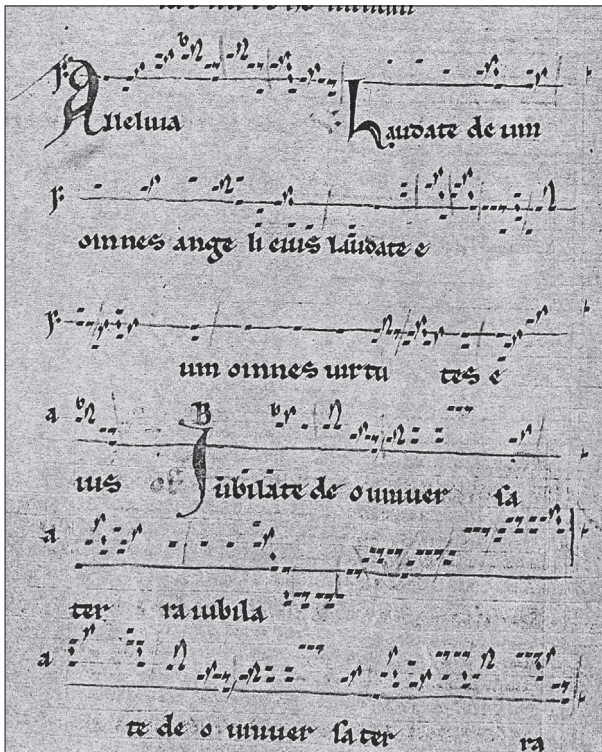 Alleluia Laudate deum
omnes ange li eius laudate e
um omnes uirtu tes e
ius Iubilate deo uniuer sa
ter ra iubila
te deo uniuer sa ter ra